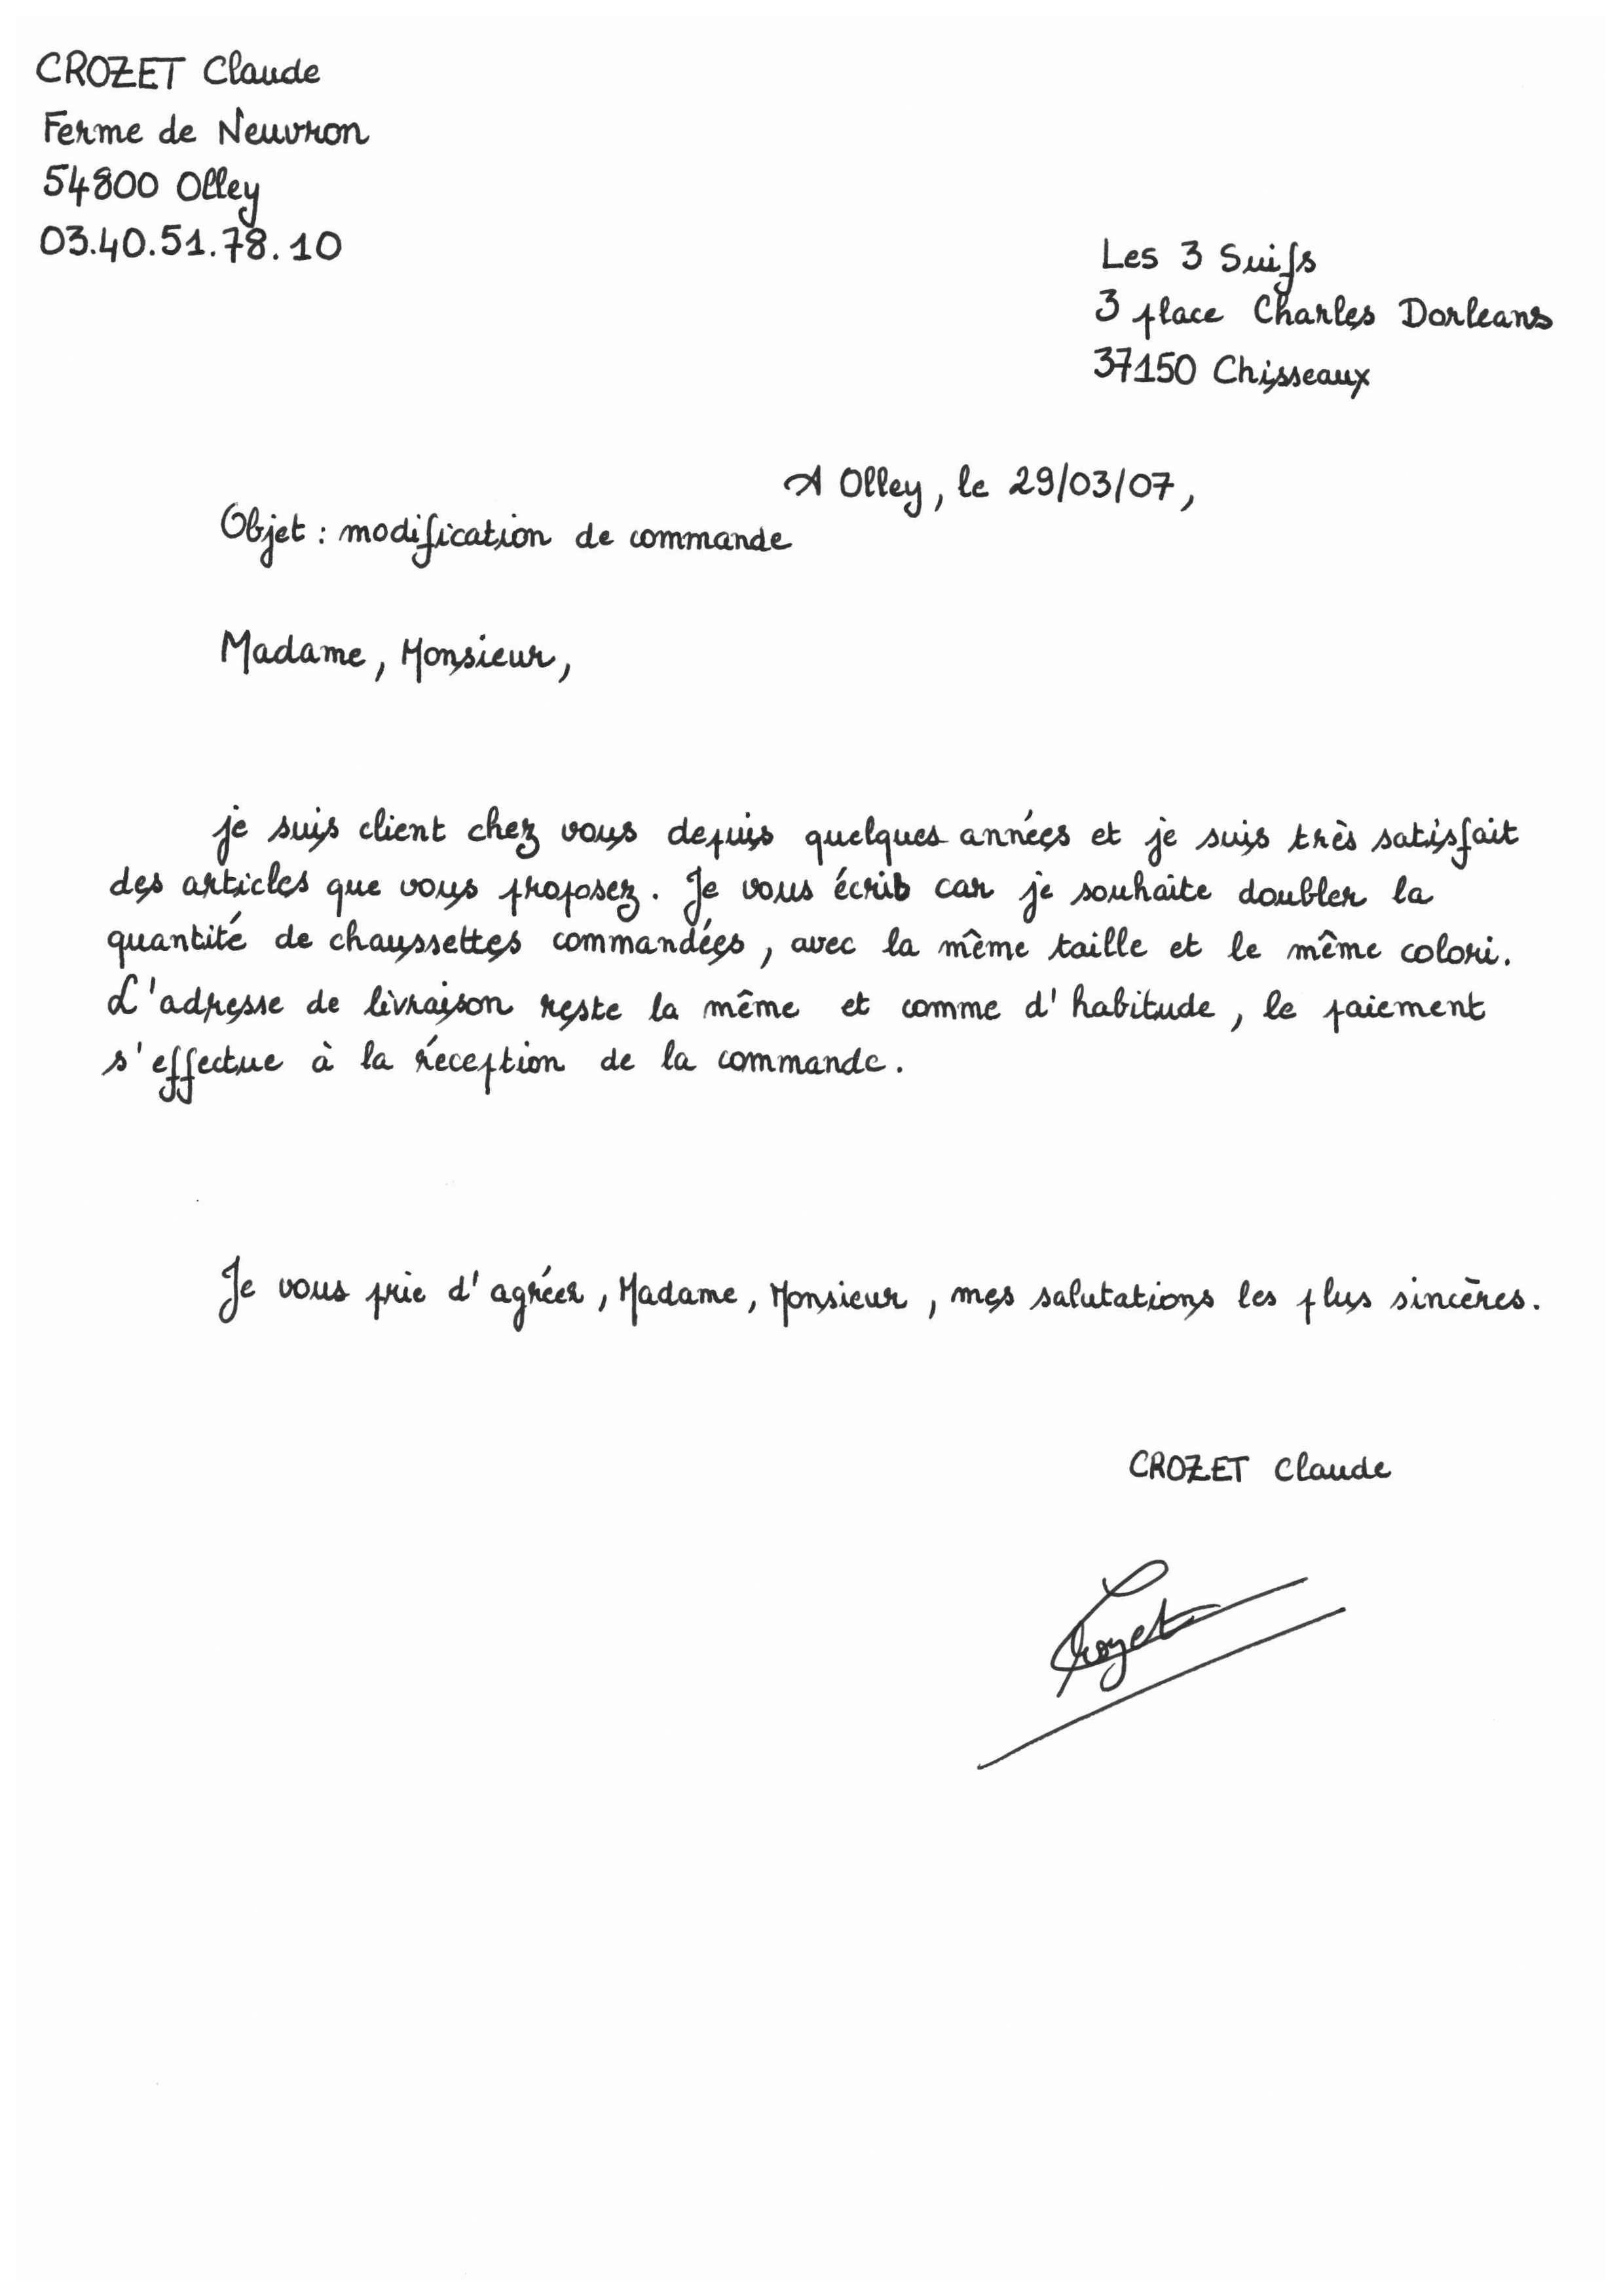 CROZET Claude
Ferme de Neuvron
54800 Olley
03.40.51.78.10
Les 3 Suifs
3 place Charles Dorleans
37150 Chisseaux
A Olley, le 29/03/07,
Objet : modification de commande
Madame, Monsieur,
je suis client chez vous depuis quelques années et je suis très satisfait
des articles que vous proposez. Je vous écris car je souhaite doubler la
quantité de chaussettes commandées, avec la même taille et le même colori.
L'adresse de livraison reste la même et comme d'habitude, le paiement
s'effectue à la réception de la commande.
Je vous prie d'agréer, Madame, Monsieur, mes salutations les plus sincères.
CROZET Claude
Crozet